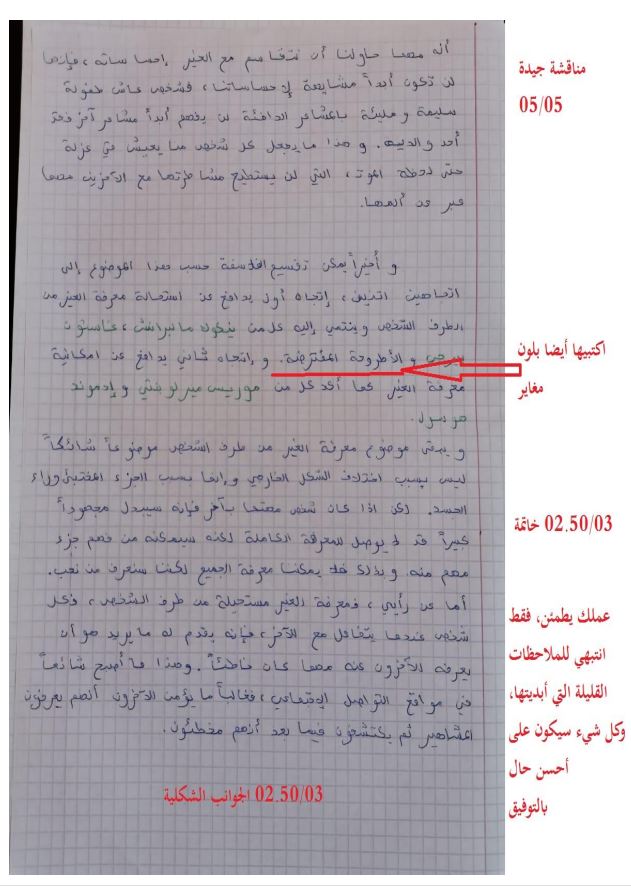 أنه مهما حاولنا أن نتقاسم مع الغير إحساساته، فإنها
لن تكون أبداً مشابهة لإحساساتنا، فشخص عاش طفولة
سليمة و مليئة بالمشاعر الدافئة لن يفهم أبداً مشاعر آخر فقد
أحد والديه. و هذا ما يجعل كل شخص منا يعيش في عزلة
حتى لحظة الموت، التي لن يستطيع مشاطرتها مع الآخرين مهما
عبر عن ألمها.
و أخيراً يمكن تقسيم الفلاسفة حسب هذا الموضوع إلى
اتجاهين اثنين، إتجاه أول يدافع عن استحالة معرفة الغير من
الطرف الشخص و ينتمي إليه كل من نيكولا مالبرانش، غاستون
بيرجي و الأطروحة المفترضة. و إتجاه ثاني يدافع عن امكانية
معرفة الغير كما أكد كل من موريس ميرلوبنتي و إدموند
هوسرل.
و يبقى موضوع معرفة الغير من طرف الشخص موضوعاً شائكاً
ليس بسبب اختلاف الشكل الخارجي و إنما بسبب الجزء المختبئ وراء
الجسد. لكن اذا كان شخص مهتما بآخر فإنه سيبدل مجهوداً
كبيراً قد لا يوصل للمعرفة الكاملة لكنه سيمكنه من فهم جزء
مهم منه. و بذلك فلا يمكننا معرفة الجميع لكننا سنعرف من نحب.
أما عن رأيي، فمعرفة الغير مستحيلة من طرف الشخص، فكل
شخص عندما يتفاعل مع الآخر، فإنه يقدم له ما يريد هو أن
يعرفه الآخرون عنه مهما كان خاطئاً. وهذا ما أصبح شائعاً
في مواقع التواصل الإجتماعي، فغالباً ما يؤمن الآخرون أنهم يعرفون
المشاهير ثم يكتشفون فيما بعد أنهم مخطئون.
02.50/03 الجوانب الشكلية
مناقشة جيدة
05/05
اكتبيها أيضا بلون
مغاير
02.50/03 خاتمة
عملك يطمئن، فقط
انتبهي للملاحظات
القليلة التي أبديتها،
وكل شيء سيكون على
أحسن حال
بالتوفيق